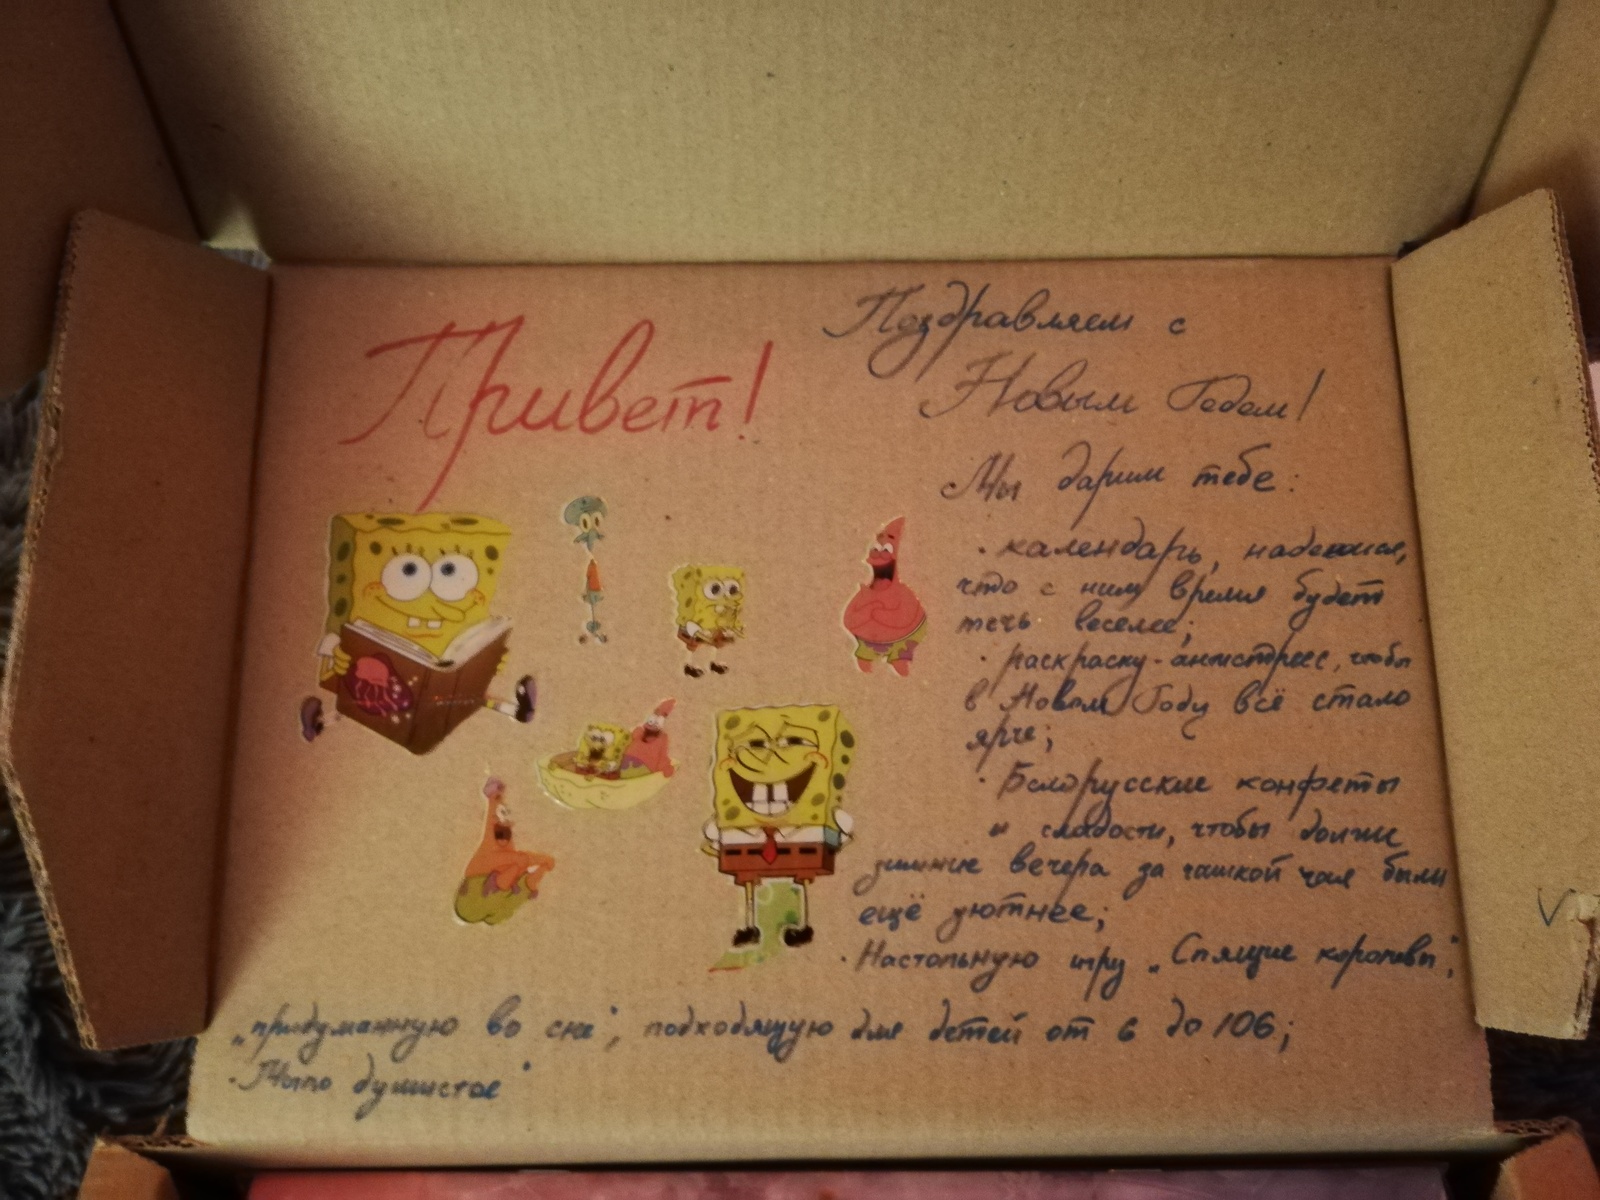 Привет!
Поздравляем с
Новым Годом!
Мы дарим тебе:
· календарь, надеемся,
что с ним время будет
течь веселее;
· раскраску-антистресс, чтобы
в Новом Году всё стало
ярче;
· Белорусские конфеты
и сладости, чтобы долгие
зимние вечера за чашкой чая были
ещё уютнее;
· Настольную игру „Спящие королевы",
„придуманную во сне", подходящую для детей от 6 до 106;
· Мыло душистое